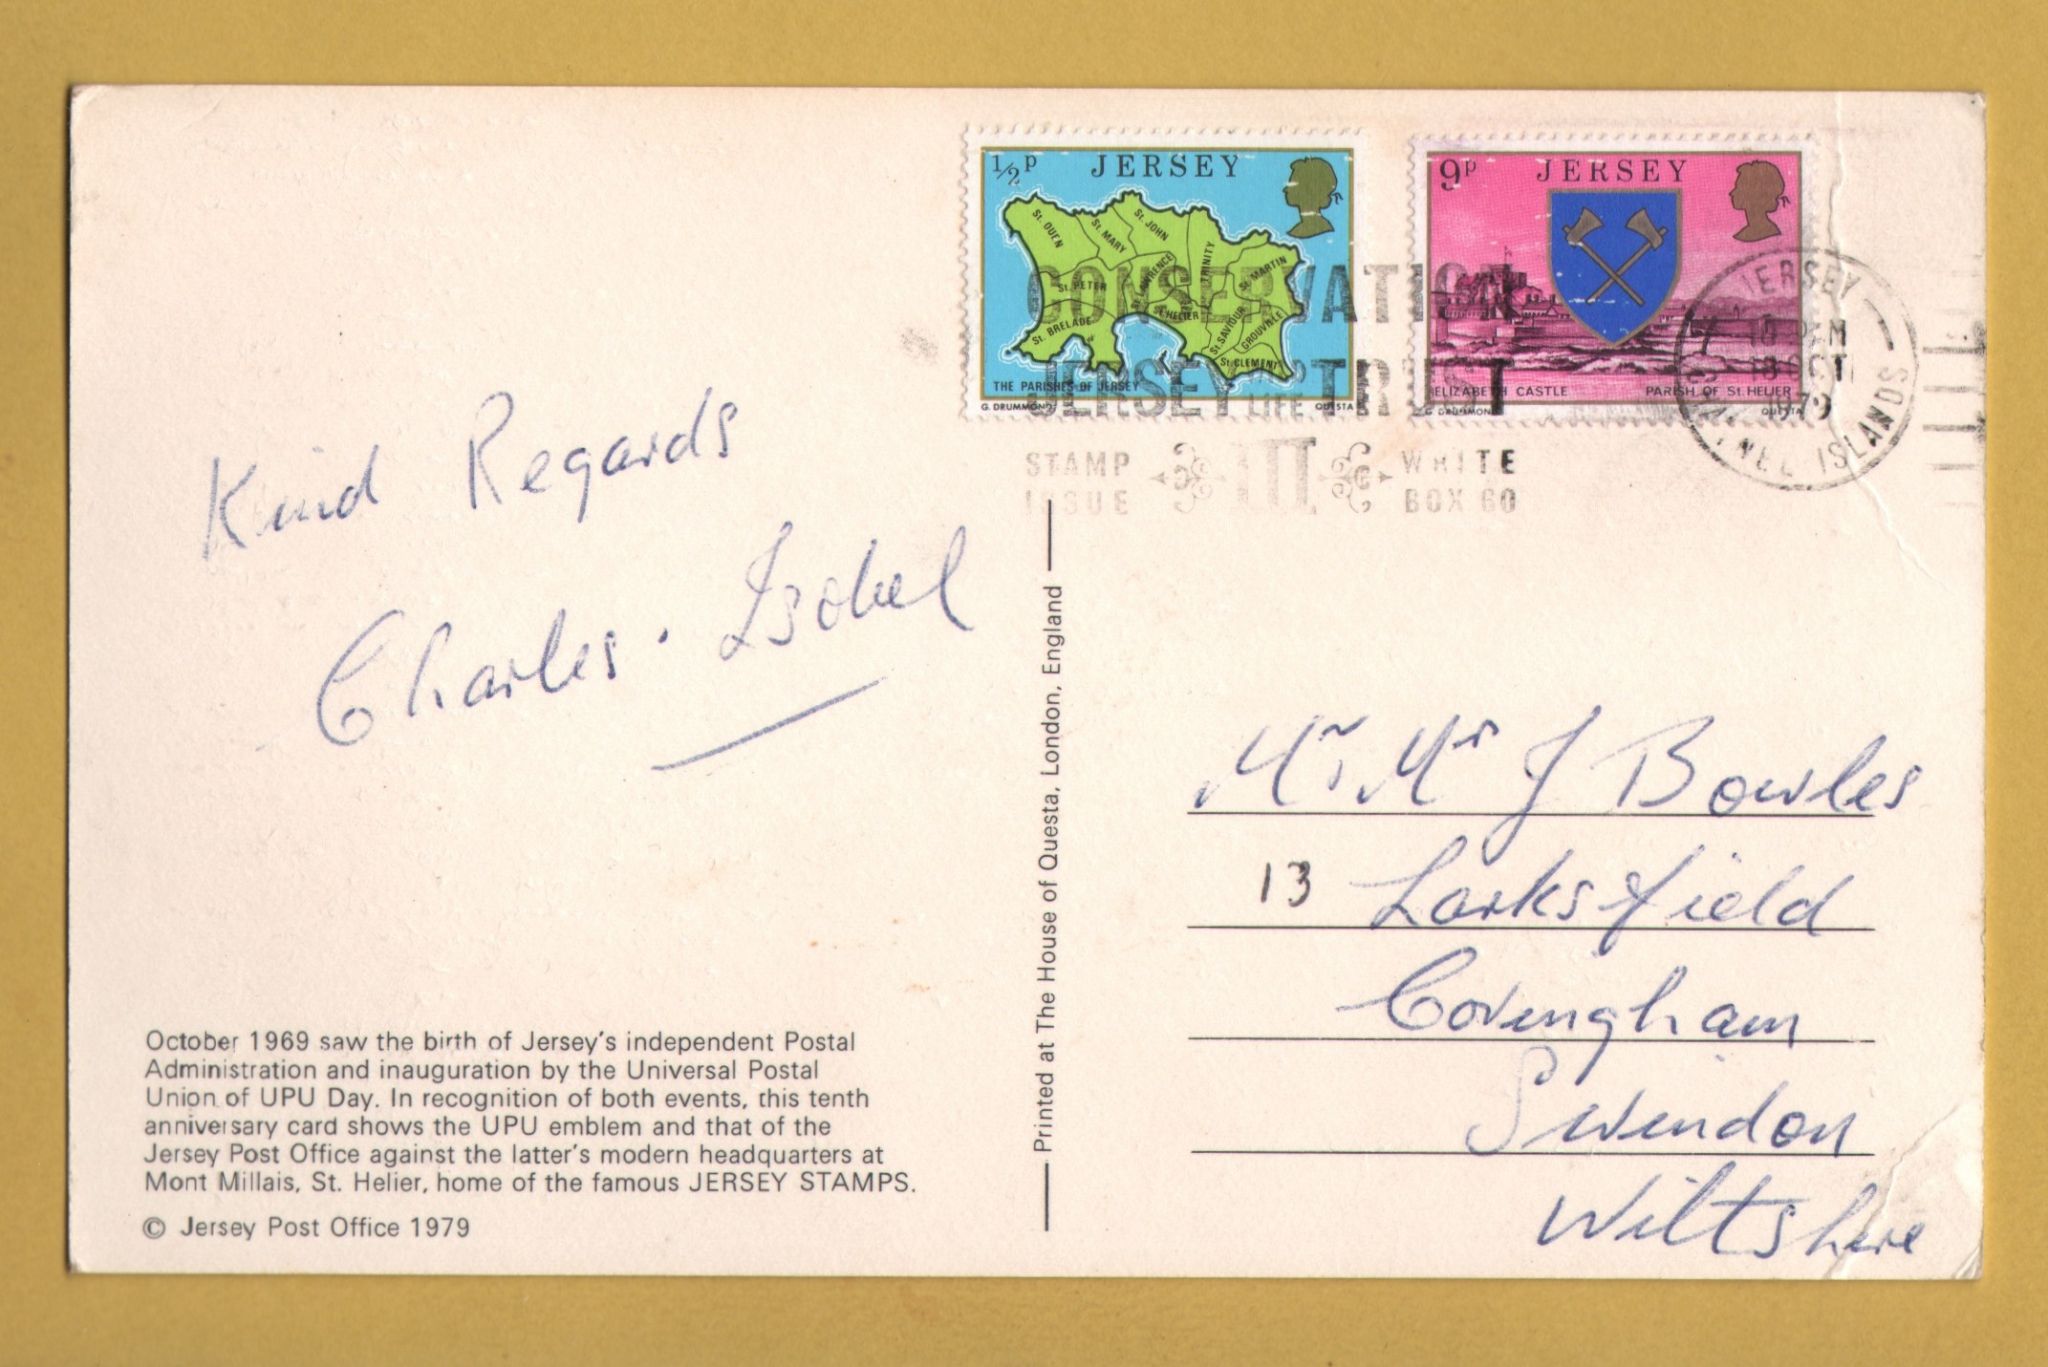 Kind Regards
Charles. Isobel
October 1969 saw the birth of Jersey's independent Postal
Administration and inauguration by the Universal Postal
Union of UPU Day. In recognition of both events, this tenth
anniversary card shows the UPU emblem and that of the
Jersey Post Office against the latter's modern headquarters at
Mont Millais, St. Helier, home of the famous JERSEY STAMPS.
© Jersey Post Office 1979
Printed at The House of Questa, London, England
½p JERSEY
St. OUEN
St. MARY
St. JOHN
St. PETER
St. LAWRENCE
TRINITY
St. MARTIN
St. BRELADE
St. HELIER
St. SAVIOUR
GROUVILLE
St. CLEMENT
THE PARISHES OF JERSEY
G. DRUMMOND QUESTA
9p JERSEY
ELIZABETH CASTLE PARISH OF St. HELIER
G DRUMMOND QUESTA
CONSERVATION
JERSEY LIFE TRUST
STAMP WRITE
ISSUE BOX 60
JERSEY
OCT
1979
CHANNEL ISLANDS
Mr Mrs J Bowles
13 Larksfield
Covingham
Swindon
Wiltshire